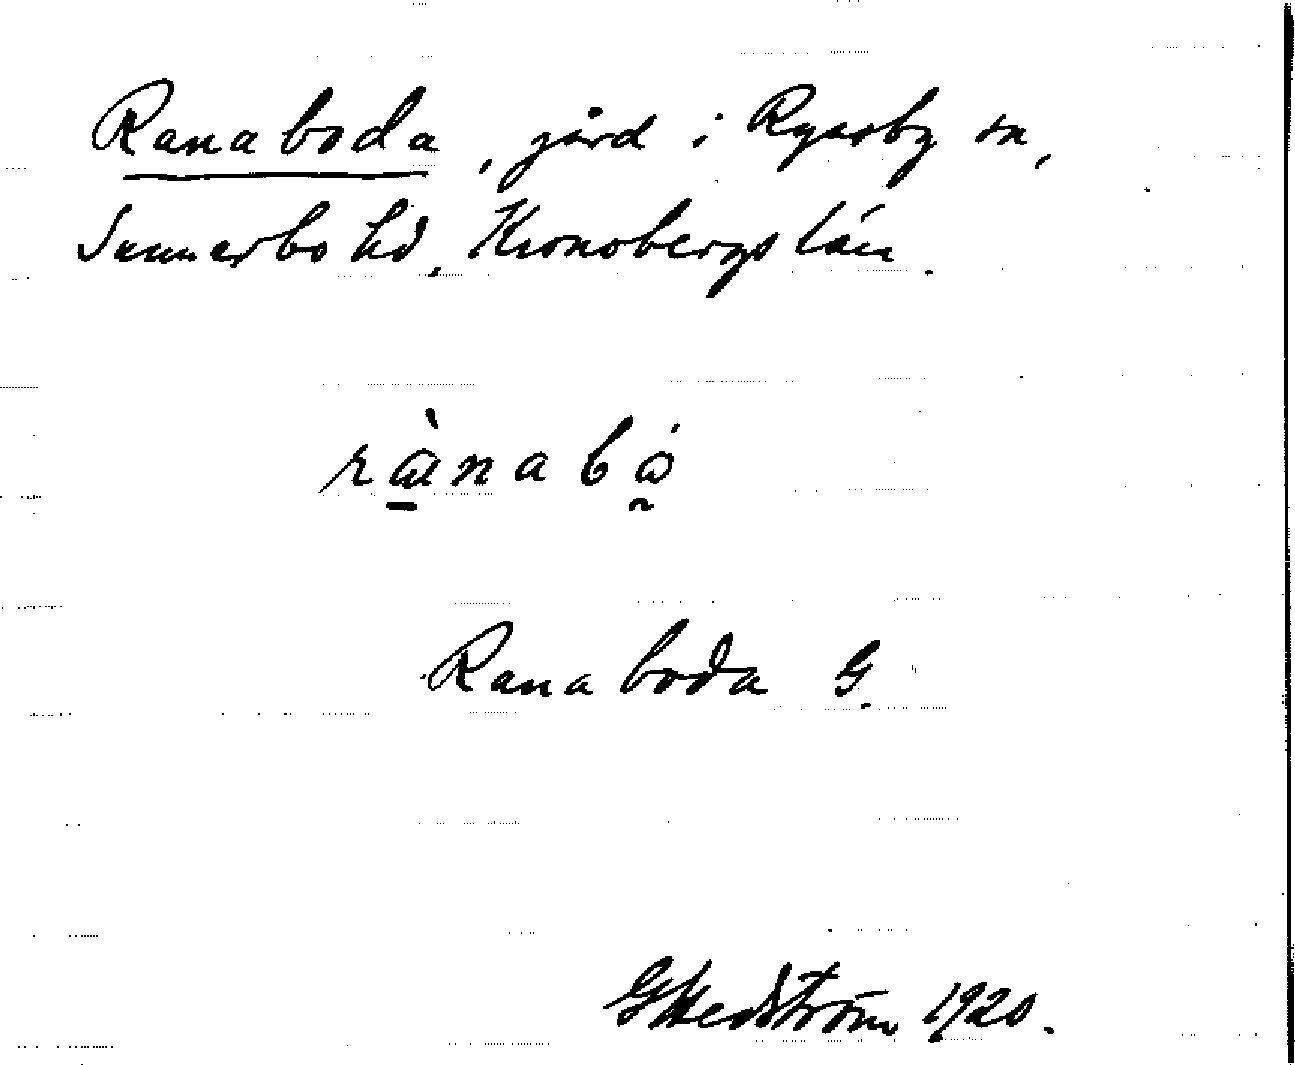 Ranaboda, gård i Ryssby sn,
Sunnerbo hd, Kronobergs län.
rànabó
Ranaboda G.
G Hedström 1920.